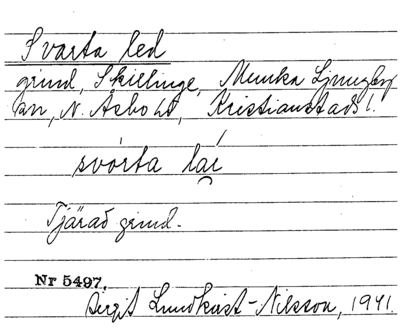 Svarta led
grind, Skillinge, Munka Ljungby
sn, N. Åsbo hd, Kristianstads l.
svárta laí
Tjärad grind.
Nr 5497.
Birgit Lundkvist-Nilsson, 1941.